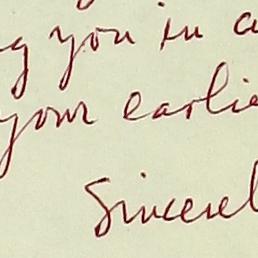 g you in a
your earlie
Sincerel